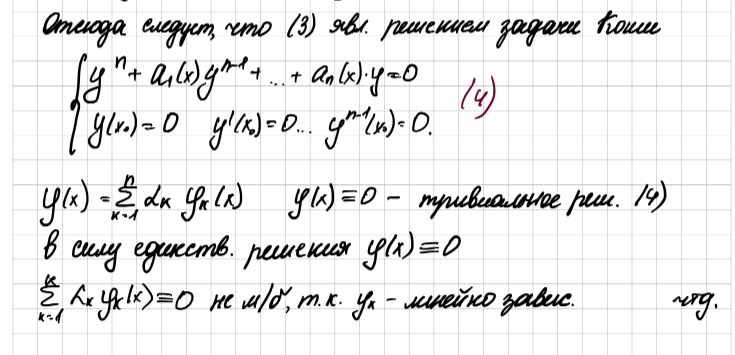 Отсюда следует, что (3) явл. решением задачи Коши
{ yⁿ + a₁(x)yⁿ⁻¹ + ... + aₙ(x)·y = 0
y(x₀) = 0 y'(x₀) = 0... yⁿ⁻¹(x₀) = 0. (4)
φ(x) = ∑ₖ₌₁ⁿ αₖ φₖ(x) φ(x) ≡ 0 – тривиальное реш. (4)
в силу единств. решения φ(x) ≡ 0
∑ₖ₌₁ᵏ αₖ φₖ(x) ≡ 0 не м/б, т.к. φₖ – линейно завис. чтд.